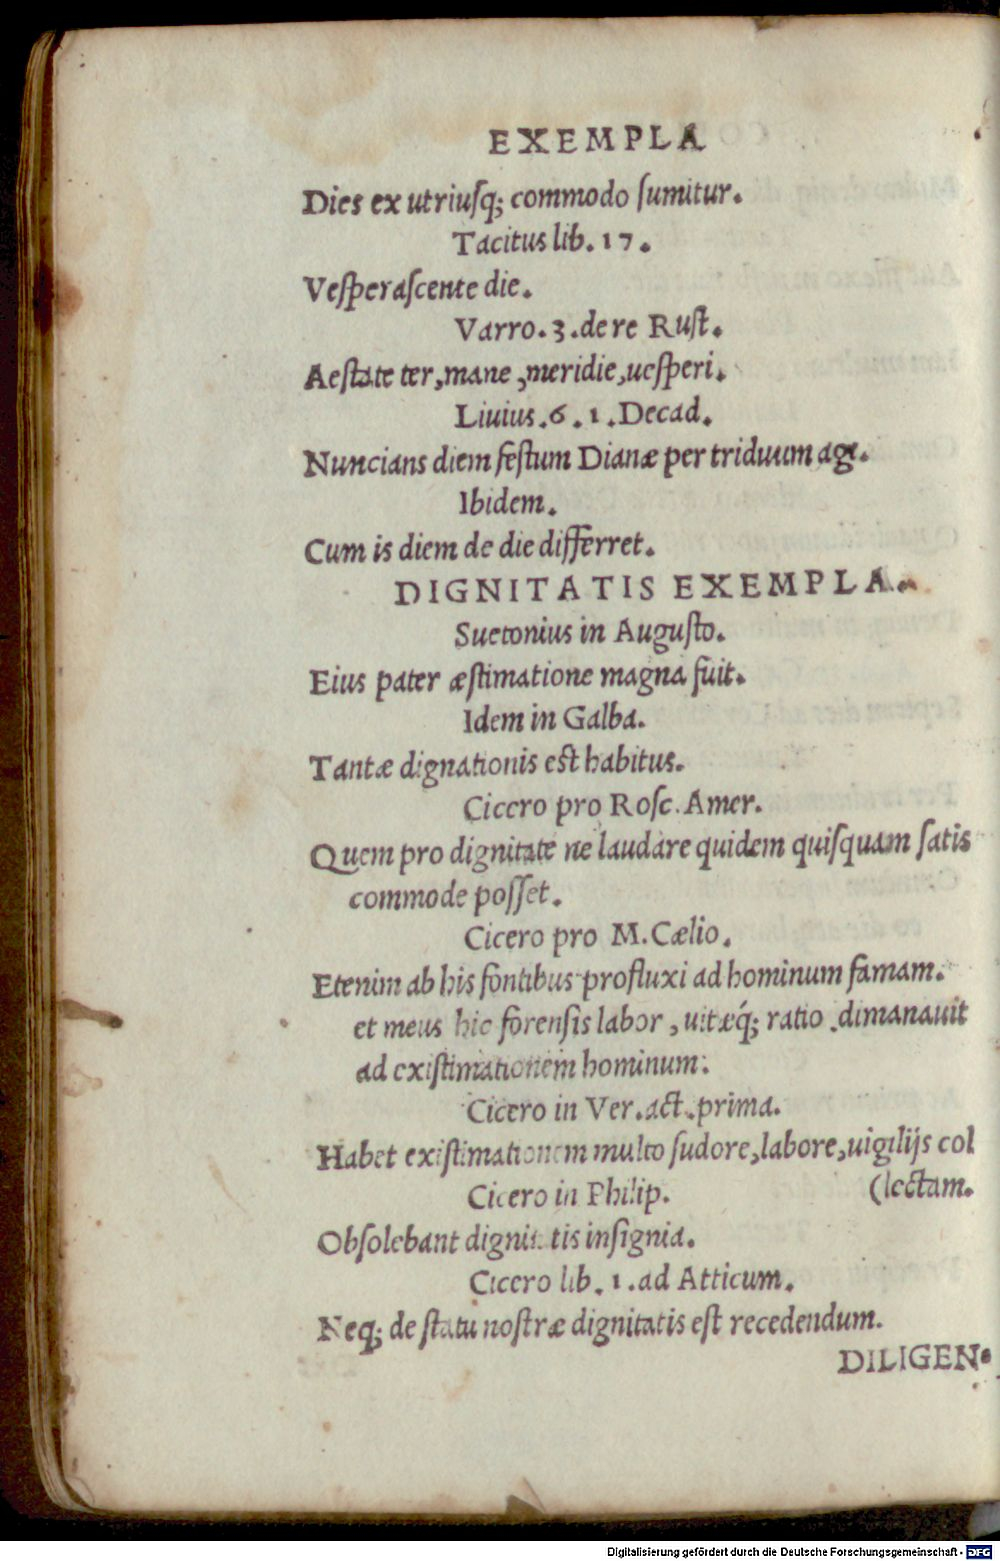 EXEMPLA
Dies ex utriuſq; commodo ſumitur.
Tacitus lib. 17.
Veſperaſcente die.
Varro. 3. de re Ruſt.
Aeſtate ter, mane, meridie, ueſperi.
Liuius. 6. 1. Decad.
Nuncians diem feſtum Dianæ per triduum agi.
Ibidem.
Cum is diem de die differret.
DIGNITATIS EXEMPLA.
Suetonius in Auguſto.
Eius pater æſtimatione magna fuit.
Idem in Galba.
Tantæ dignationis eſt habitus.
Cicero pro Roſc. Amer.
Quem pro dignitate ne laudare quidem quiſquam ſatis
commode poſſet.
Cicero pro M. Cælio.
Etenim ab his fontibus profluxi ad hominum famam.
et meus hic forenſis labor, uitæq́; ratio dimanauit
ad exiſtimationem hominum.
Cicero in Ver. act. prima.
Habet exiſtimationem multo ſudore, labore, uigilijs col
(lectam.
Cicero in Philip.
Obſolebant dignitatis inſignia.
Cicero lib. 1. ad Atticum.
Neq; de ſtatu noſtræ dignitatis eſt recedendum.
DILIGEN-
Digitalisierung gefördert durch die Deutsche Forschungsgemeinschaft - DFG